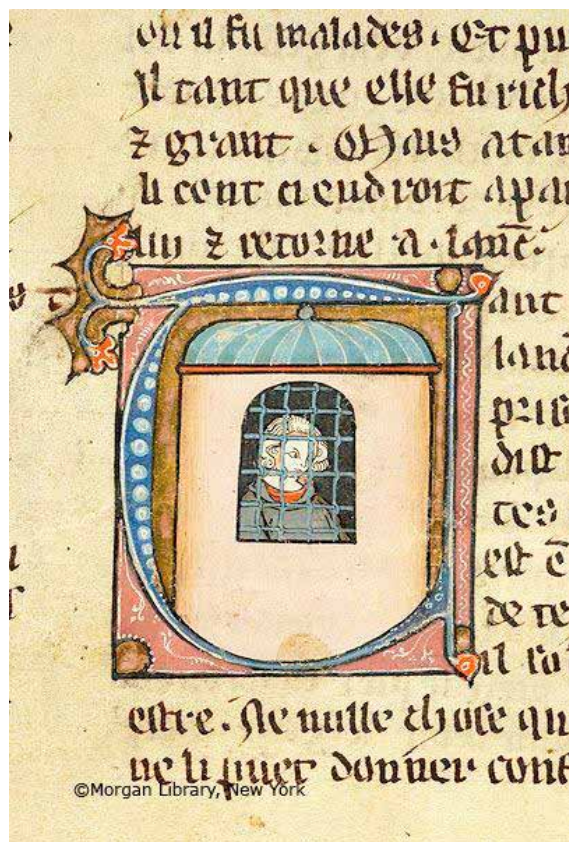 ou il fu malades. Et pu
Il tant que elle fu rich
⁊ grant. Mais atan
li cent ci endroit apar
luy ⁊ retorne a. lanc̄.
Tant
lanc
priso
dist
tes
est ē
de te
il so
estre. Ne nulle chose qu
ne li puet donner conf
©Morgan Library, New York